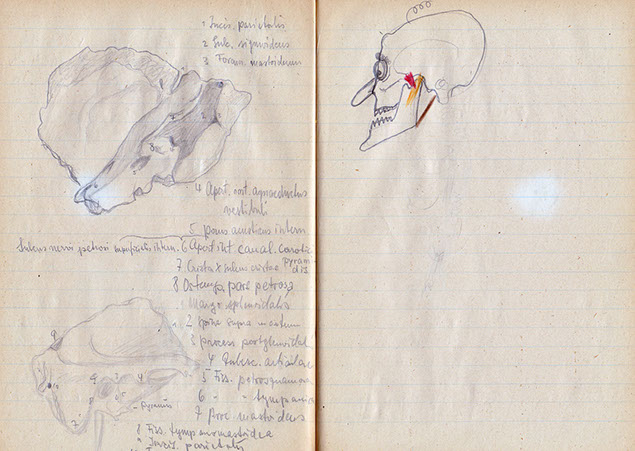 1 Incis. parietalis
2 Sulc. sigmoideus
3 Foram. mastoideum
4 Apert. ext. aquaeductus
vestibuli
5 porus acusticus intern
Sulcus nervi petrosi intern. 6 Apert. int. canal. carotic
7 Crista × sulcus cristae pyramidis
8 pars petrosa
1 Margo sphenoidalis
2 Spina supra meatum
3 process postglenoidal
4 Tuberc. articulare
5 Fiss. petrosquamosa
6 " " tympanica
7 Proc. mastoideus
8 Fiss. tympanomastoidea
9 Incis. parietalis